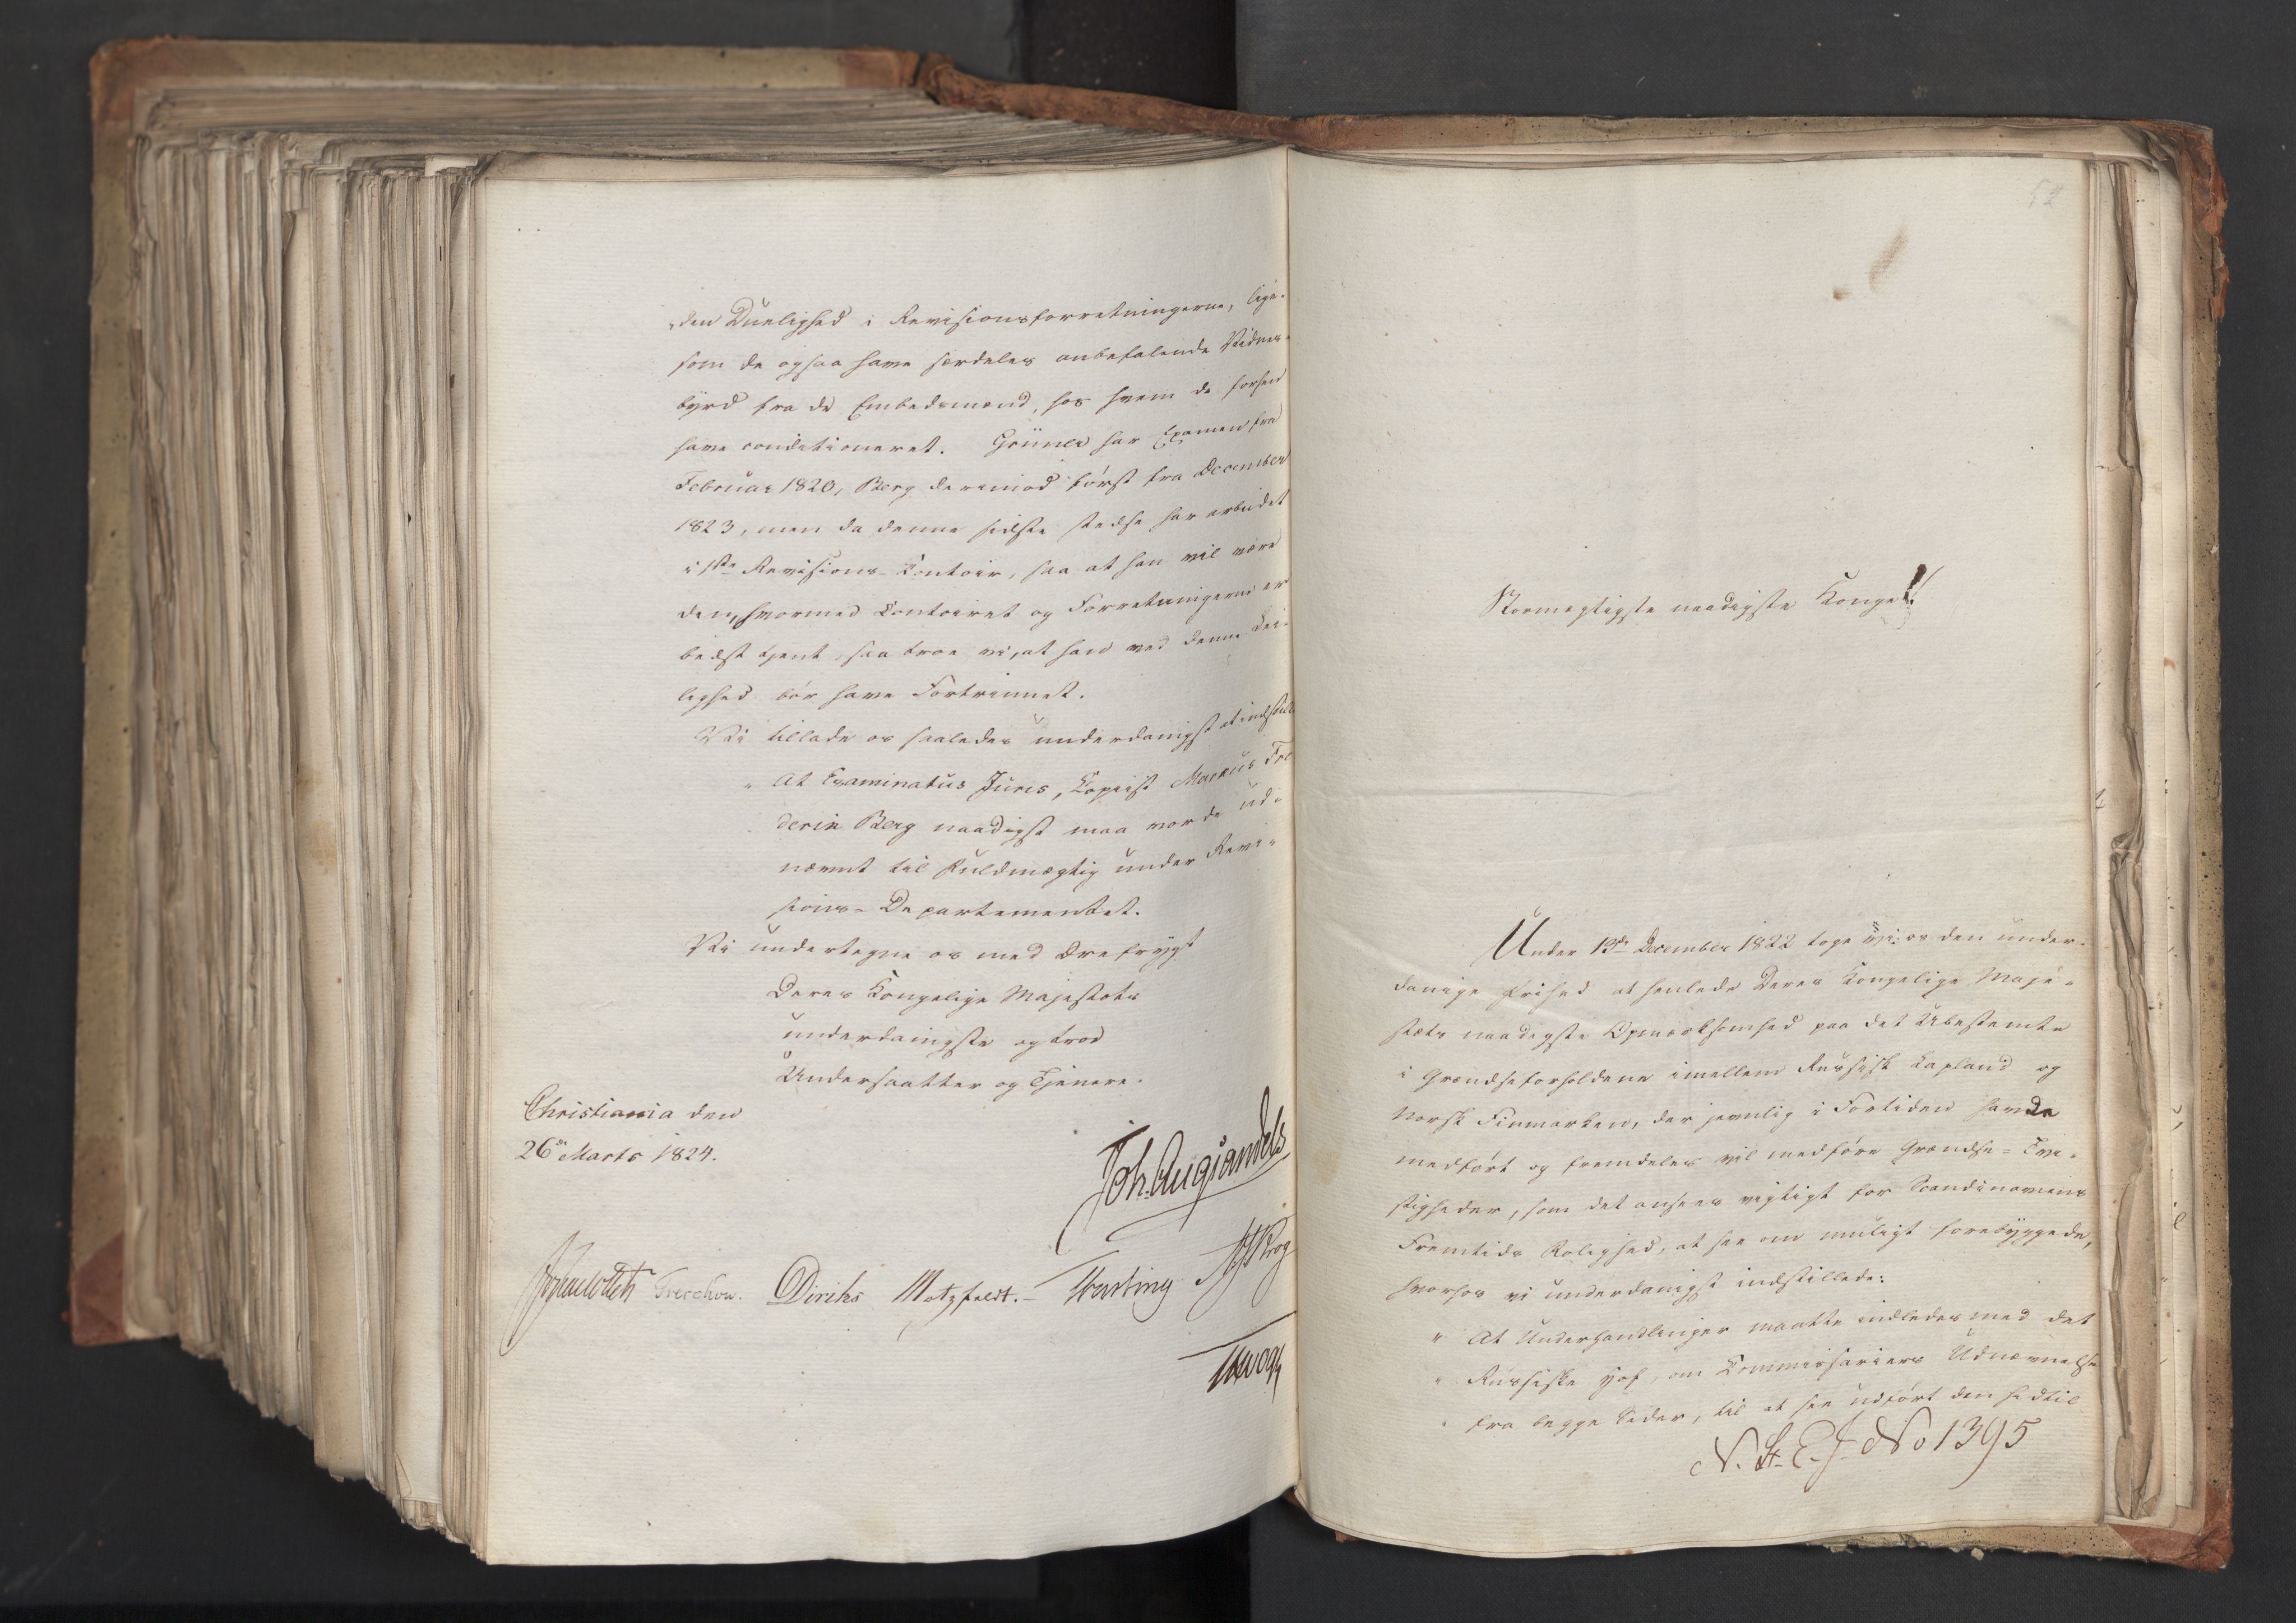 den Duelighed i Revisionsforretningerne, lige-
som de ogsaa have særdeles anbefalende Vidnes-
byrd fra de Embedsmænd, hos hvem de forhen
have conditioneret. Grüner har Examen fra
Februar 1820, Berg derimod først fra December
1823, men da denne sidste stedse har arbeidet
i 1ste Revisions-Contoir, saa at han vil være
den, hvormed Contoiret og Forretningerne er
bedst tjent, saa troe vi, at han ved denne Lei-
lighed bør have Fortrinnet.
Vi tillade os saaledes underdanigst at indstille
" At Examinatus Juris, Copist Marcus Fre
derik Berg naadigst maa vorde ud-
nævnt til Fuldmægtig under Revi-
sions-Departementet.
Vi undertegne os med Ærefrygt
Deres Kongelige Majestæts
underdanigste og troe
Undersaatter og Tjenere.
Christiania den
26de Marts 1824.
Joh. Aug. Sandels
Treschow. Diriks Motzfeldt. Krog
52
Stormægtigste naadigste Konge!
Under 13de December 1822 toge vi os den under-
danige Frihed at henlede Deres Kongelige Maje-
stæts naadigste Opmærksomhed paa det Ubestemte
i Grændseforholdene imellem Russisk Lapland og
Norsk Finmarken, der jevnlig i Fortiden havde
medført og fremdeles vil medføre Grændse-Tvi-
stigheder, som det ansees vigtigt for Scandinaviens
Fremtids Rolighed, at see om muligt forebyggede,
hvorhos vi underdanigst indstillede:
" At Underhandlinger maatte indledes med det
" Russiske Hof, om Commissariers Udnævnelse
" fra begge Sider, til at see udført den hidtil
N. St. E. J. No 1395